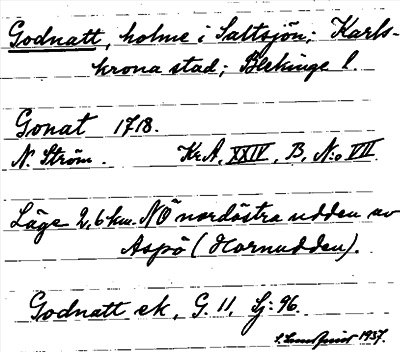 Godnatt, holme i Saltsjön; Karls-
krona stad; Blekinge l.
Gonat 1718.
N. Ström. Kr.A, XXIV, B, N:o VII
Läge 2,6 km. NÖ nordöstra udden av
Aspö (Hornudden).
Godnatt ek, G. 11, Lj: 96.
1937.